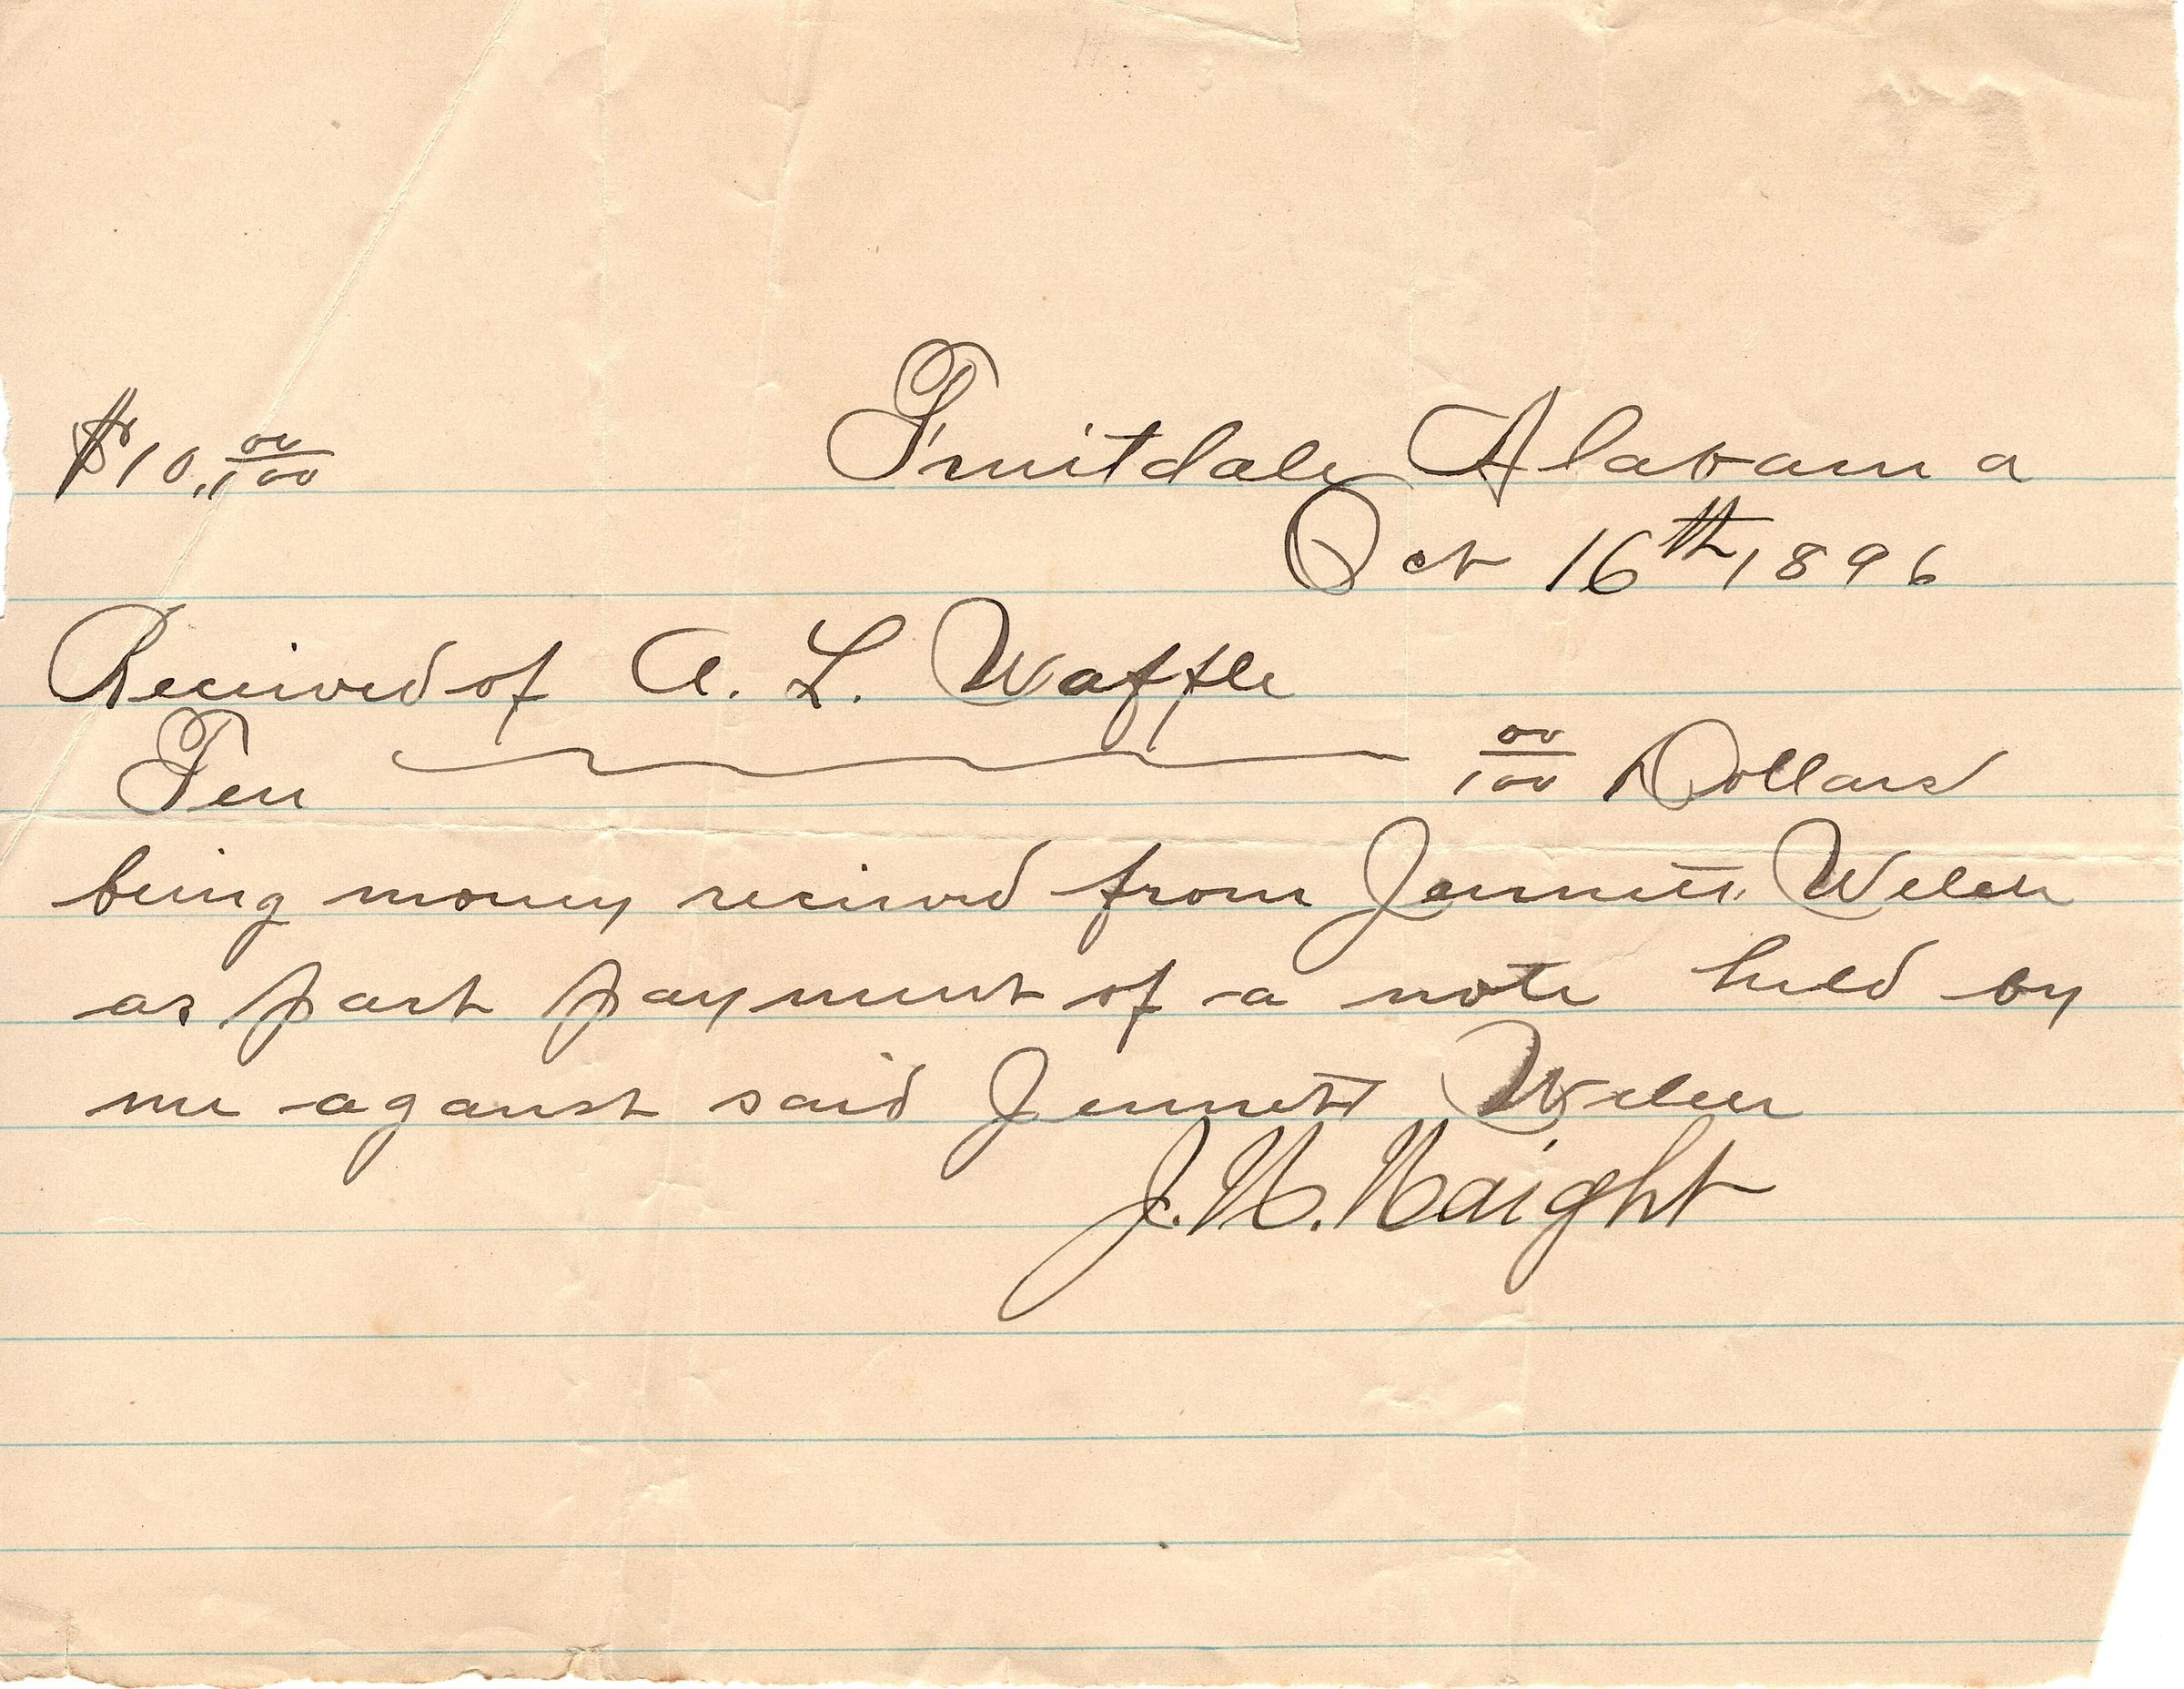 $10.00/100 Fruitdale Alabama
Oct 16th 1896
Received of A. L. Waffle
Ten 00/100 Dollars
being money recived from Jennett Welch
as part payment of a note held by
me aganst said Jennett Welch
J. H. Haight